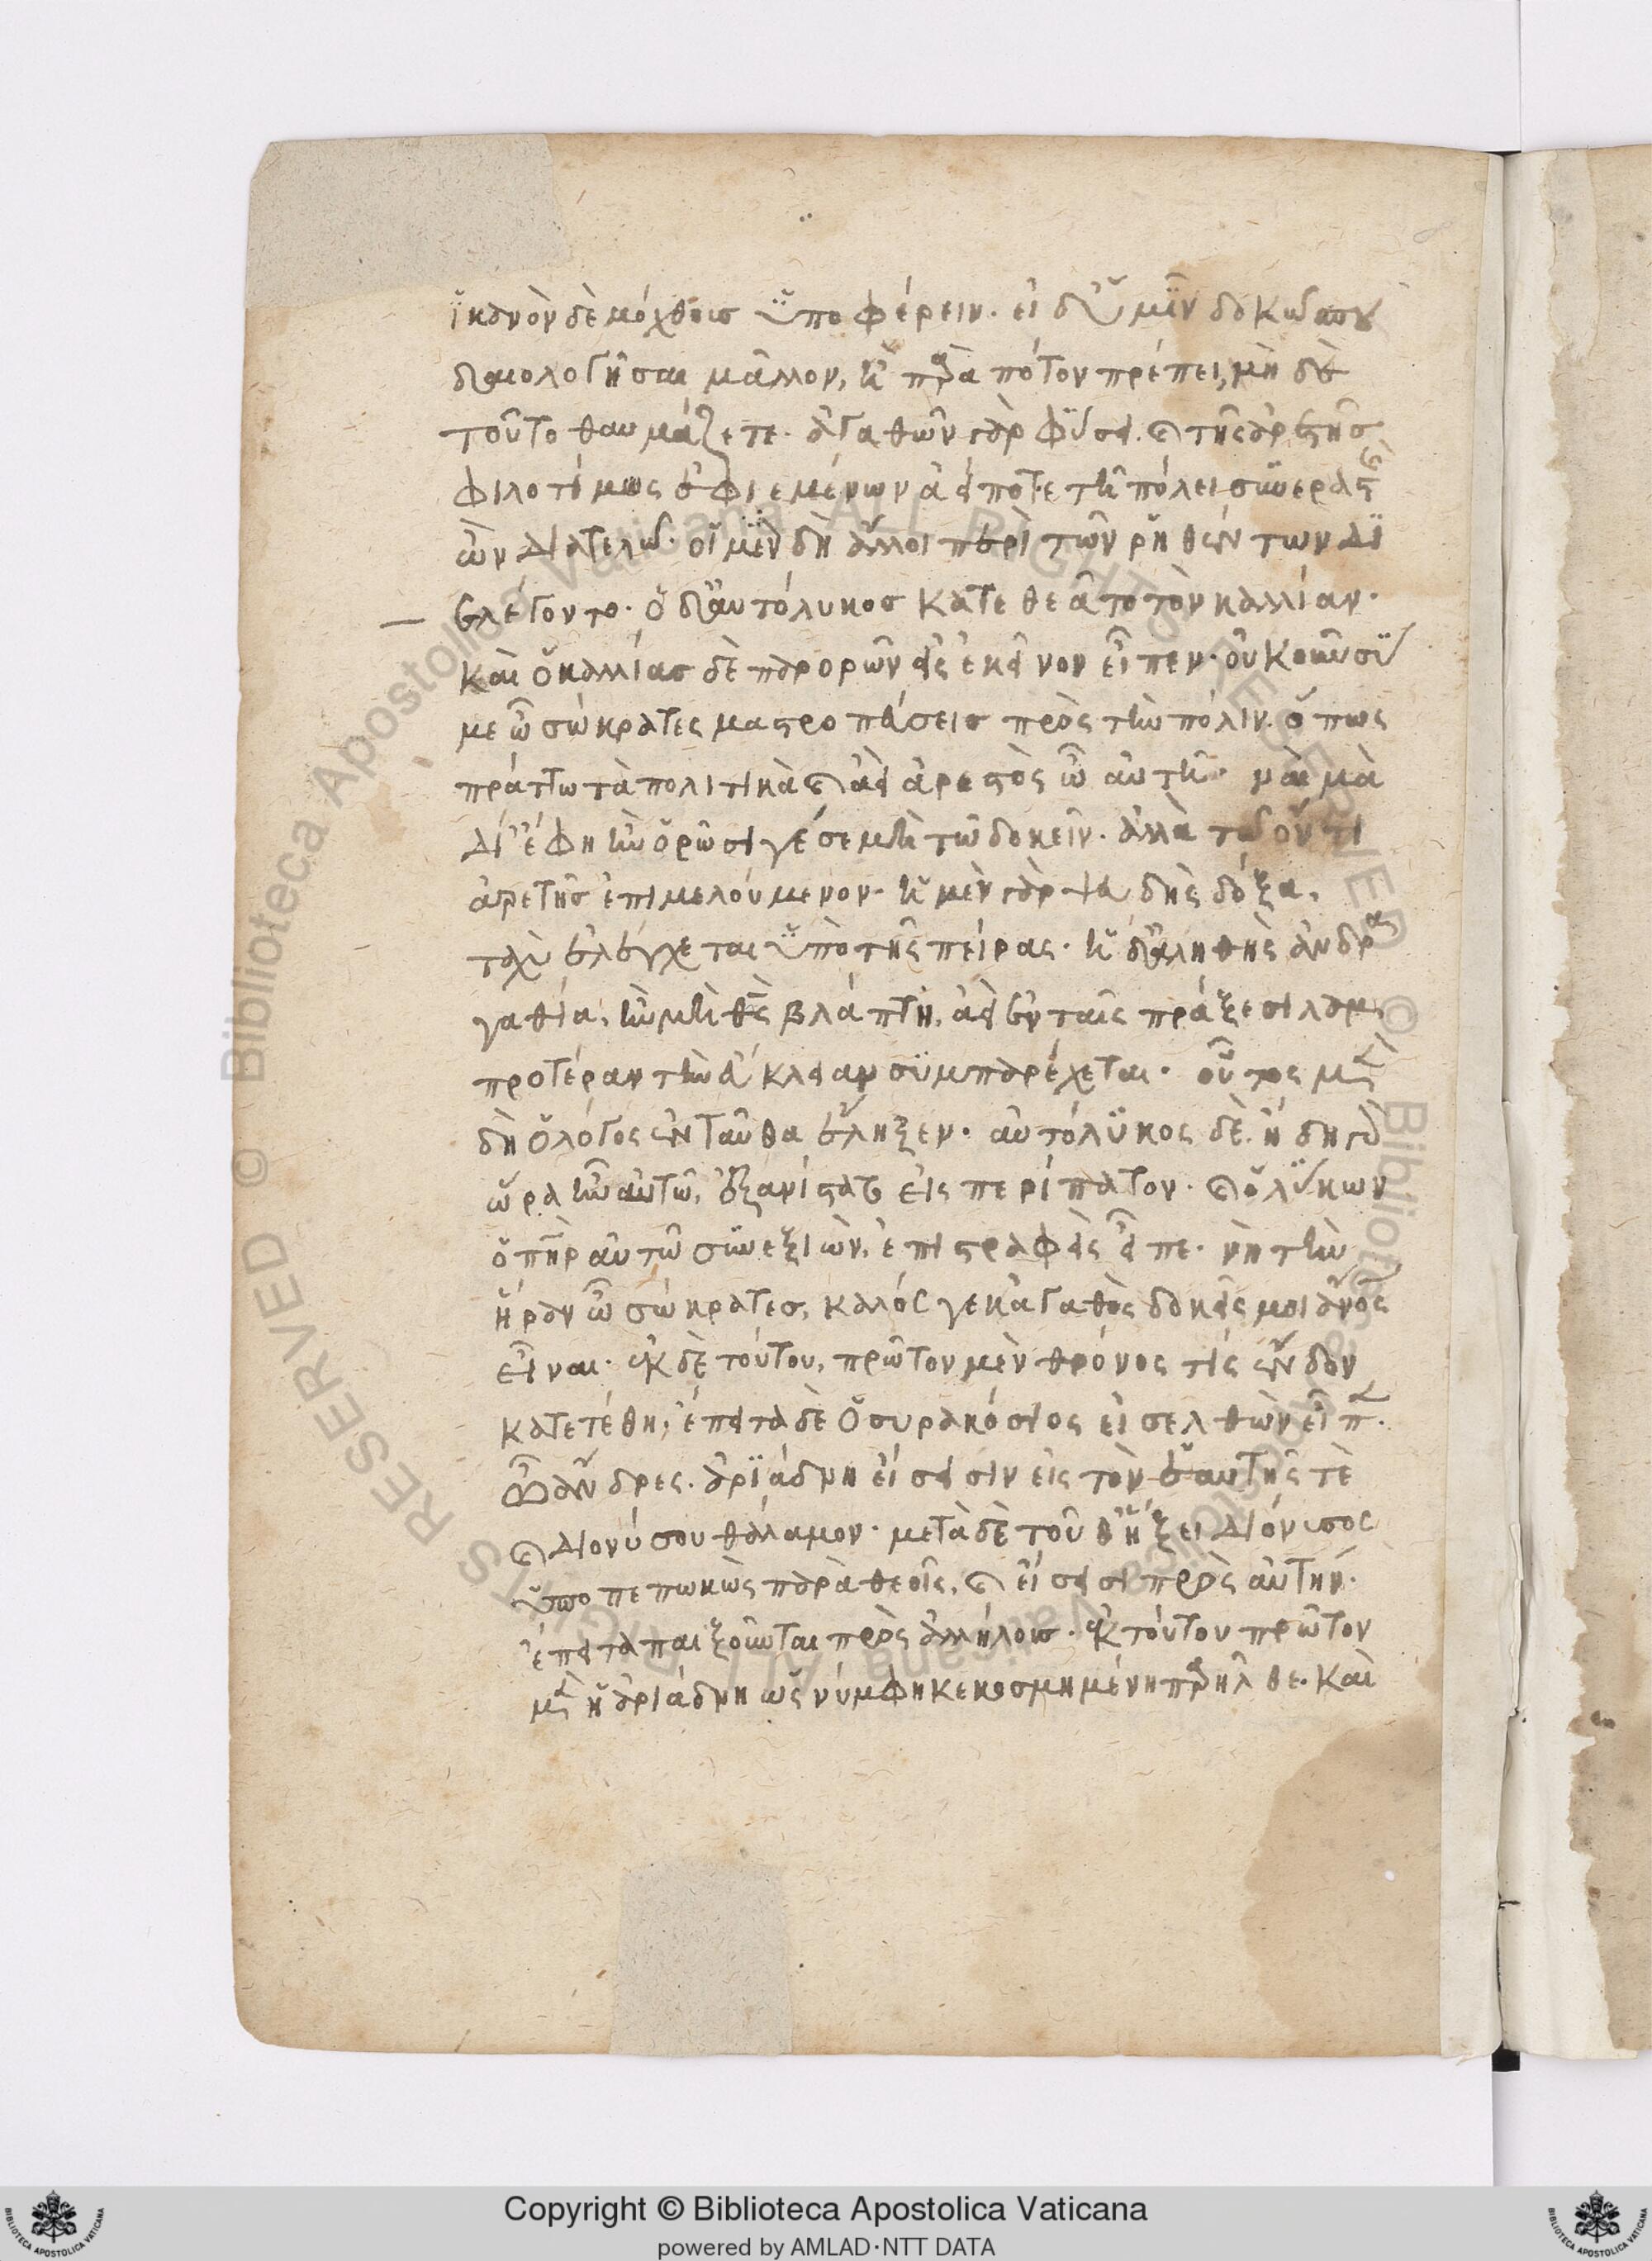 ἱκανὸν δὲ μόχθοις ὑποφέρειν. εἰ δ' ὑμῖν δοκῶ σπου
δαιολογῆσαι μᾶλλον, ἢ παρὰ πότον πρέπει, μὴ δὲ
τοῦτο θαυμάζετε. ἀγαθῶν γὰρ φύσει. καὶ τῆς ἀρετῆς
φιλοτίμως ἐφιεμένων ἀεί ποτε τῇ πόλει συνεραστὴς
ὢν διατελῶ. οἱ μὲν δὴ ἄλλοι περὶ τῶν ῥηθέντων δι
ελέγοντο. ὁ δ' αὐτόλυκος κατεθεᾶτο τὸν καλλίαν.
καὶ ὁ καλλίας δὲ παρορῶν εἰς ἐκεῖνον εἶπεν. οὐκοῦν σύ
με ὦ σώκρατες μαστροπεύσεις πρὸς τὴν πόλιν. ὅπως
πράττω τὰ πολιτικὰ καὶ ἀεὶ ἀρεστὸς ὦ αὐτῇ. ναὶ μὰ
Δί' ἔφη ἢν ὁρῶσί γέ σε μὴ τῷ δοκεῖν. ἀλλὰ τῷ ὄντι
ἀρετῆς ἐπιμελούμενον. ἡ μὲν γὰρ ψευδὴς δόξα,
ταχὺ ἐλέγχεται ὑπὸ τῆς πείρας. ἡ δ' ἀληθὴς ἀνδρα
γαθία, ἢν μὴ θεὸς βλάπτῃ, ἀεὶ ἐν ταῖς πράξεσι λαμ
προτέραν τὴν εὔκλειαν συμπαρέχεται. οὗτος μὲν
δὴ ὁ λόγος ἐνταῦθα ἔληξεν. αὐτόλυκος δὲ. ἤδη γὰρ
ὥρα ἦν αὐτῷ, ἐξανίστατο εἰς περίπατον. καὶ ὁ λύκων
ὁ πῆρ αὐτῷ συνεξιὼν, ἐπιστραφεὶς εἶπε. νὴ τὴν
ἥραν ὦ σώκρατες, καλός γε κἀγαθὸς δοκεῖς μοι ἄνος
εἶναι. ἐκ δὲ τούτου, πρῶτον μὲν θρόνος τίς ἔνδον
κατετέθη, ἔπειτα δὲ ὁ συρακόσιος εἰσελθὼν εἶπεν.
ὦ ἄνδρες. ἀριάδνη εἴσεισιν εἰς τὸν ἑαυτῆς τὲ
καὶ Διονύσου θάλαμον. μετὰ δὲ τοῦθ' ἥξει Διόνυσος
ὑποπεπωκὼς παρὰ θεοῖς, καὶ εἴσεισι πρὸς αὐτήν.
ἔπειτα παιξοῦνται πρὸς ἀλλήλους. ἐκ τούτου πρῶτον
μὲν ἡ ἀριάδνη ὡς νύμφη κεκοσμημένη παρῆλθε. καὶ
Copyright © Biblioteca Apostolica Vaticana
powered by AMLAD·NTT DATA